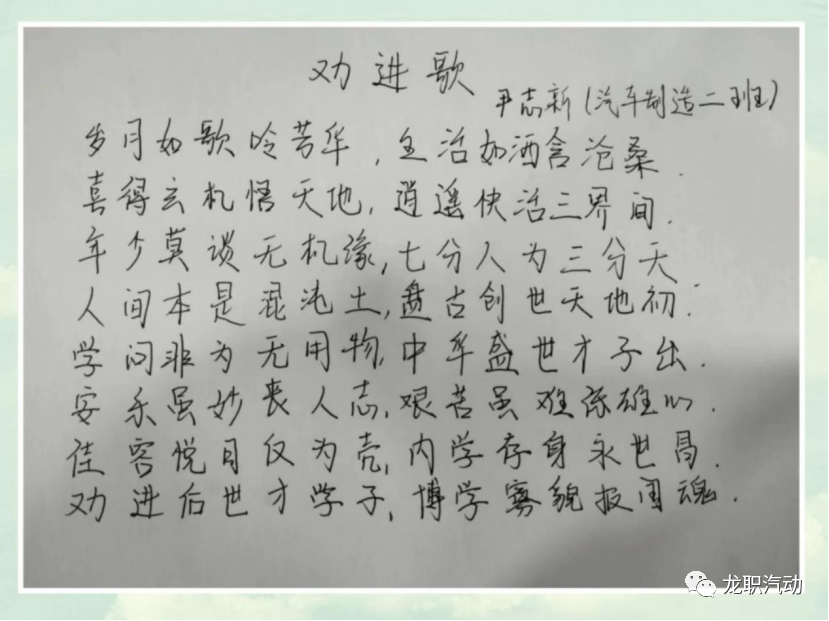 劝进歌
尹志新(汽车制造二班)
岁月如歌吟芳华,生活如酒含沧桑.
喜得玄机悟天地,逍遥快活三界间.
年少莫谈无机缘,七分人为三分天
人间本是混沌土,盘古创世天地初.
学问非为无用物,中华盛世才子出.
安乐虽妙丧人志,艰苦虽难添雄心.
佳容悦目仅为壳,内学存身永世昌.
劝进后世才学子,博学貌报国魂.
龙职汽动